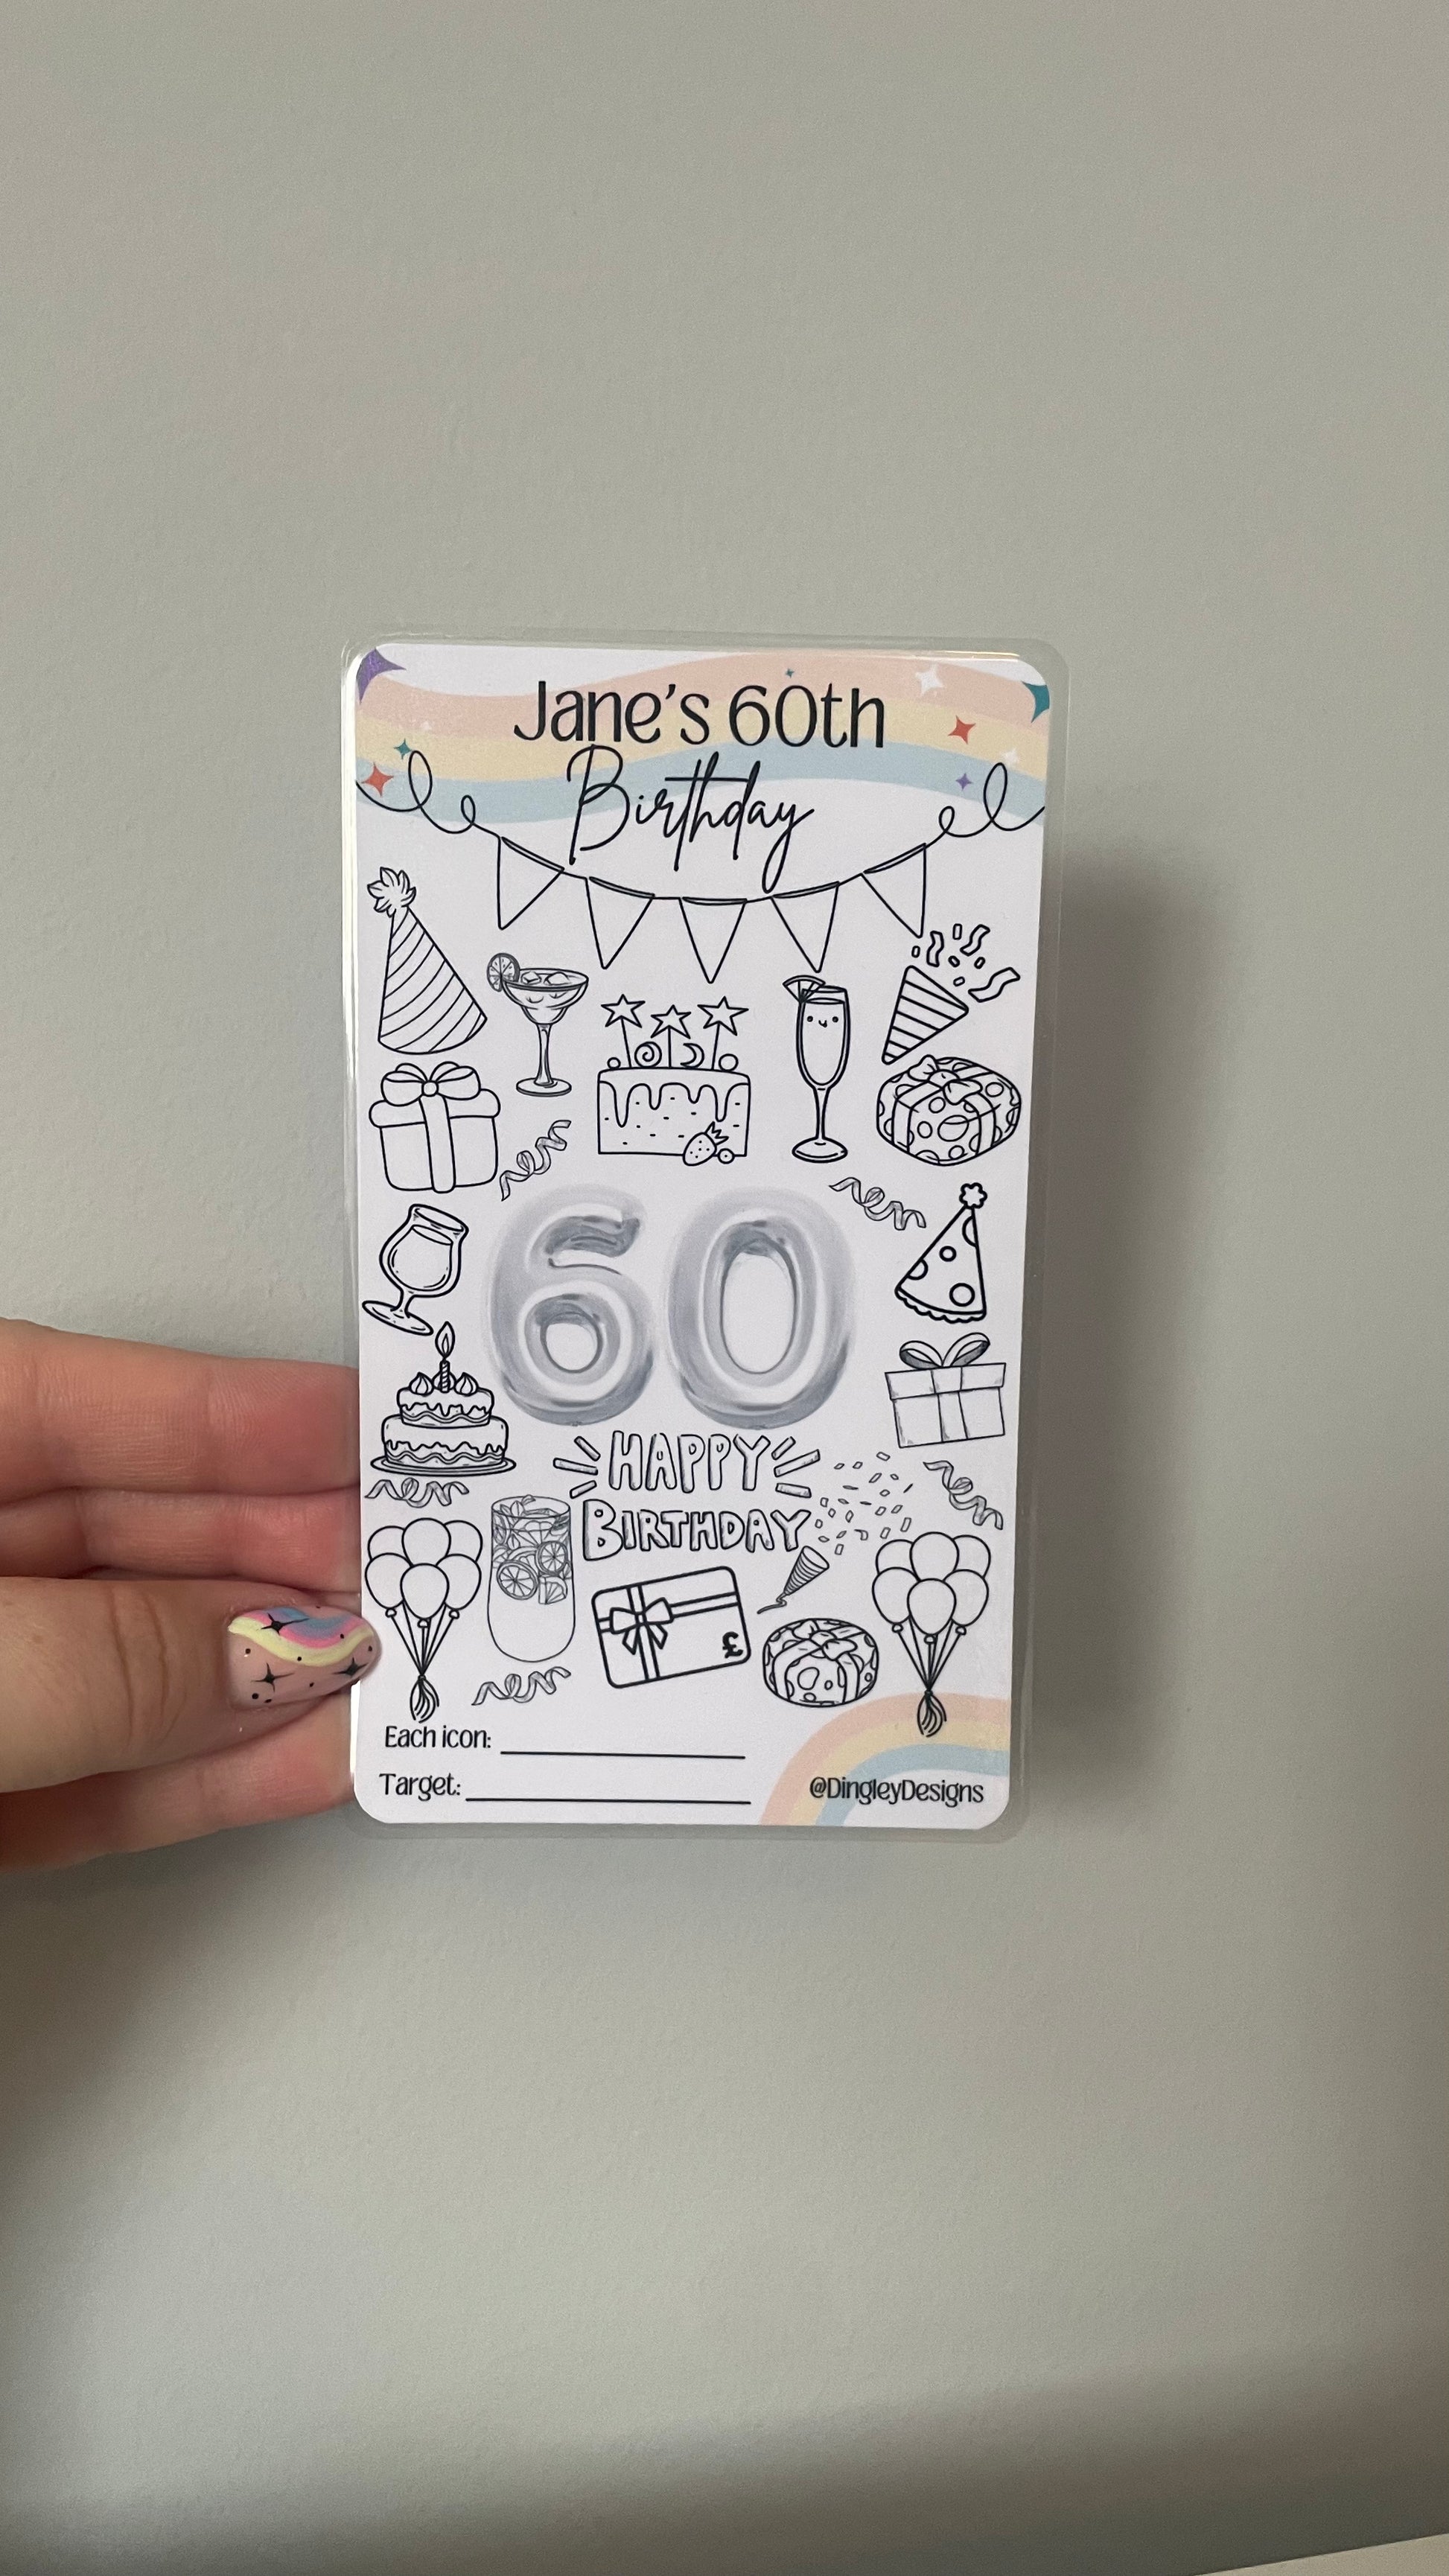 Jane's 60th
Birthday
60
HAPPY
BIRTHDAY
£
Each icon:
Target:
@DingleyDesigns